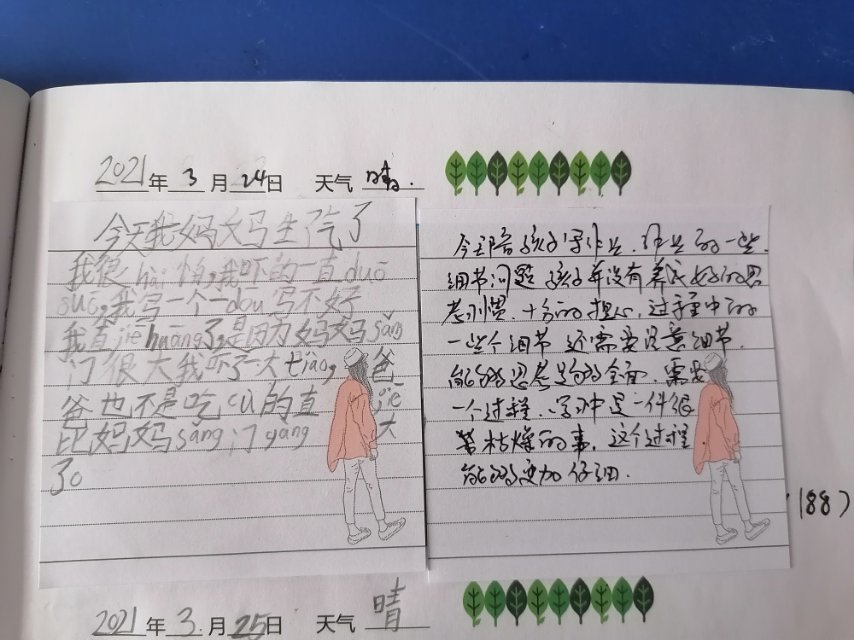 2021年 3 月 24日 天气 晴.
今天我妈妈生气了
我很hài怕,我吓的一直duō
suō,我写一个一dōu写不好
我直jiē huāng了,是因为妈妈sǎng
门很大我吓了一大tiào,爸
爸也不是吃cù的直jiē
比妈妈sǎng门gang大
了。
今天陪孩子写作业,作业的一些
细节问题 孩子并没有养成好的思
考习惯. 十分的担心, 过程中的
一些个细节 还需要注意细节.
能够思考的够全面. 需要
一个过程. 学习中是一件很
枯燥的事. 这个过程
能够更加仔细.
(88)
2021年 3 月 25日 天气 晴